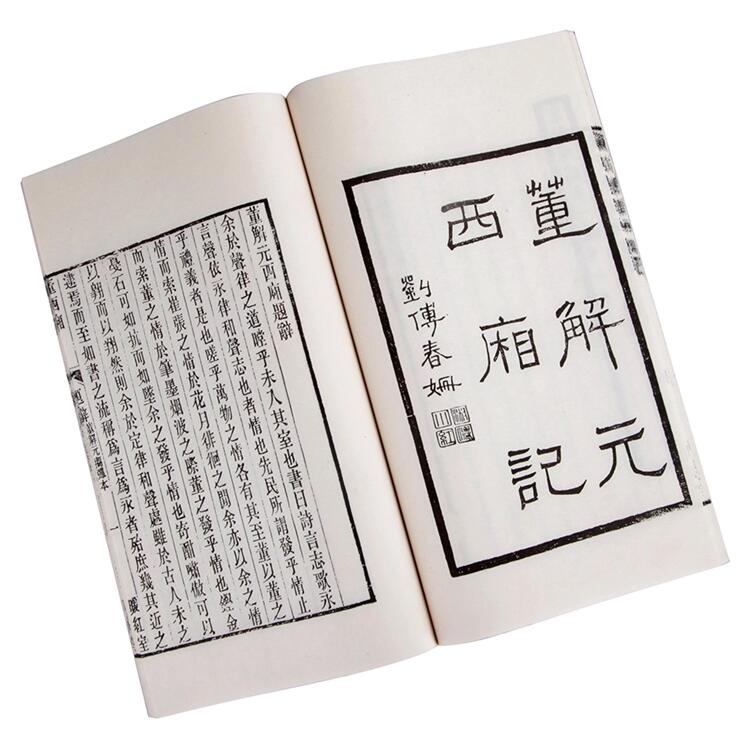 董解元
西廂記
劉傅春姍
董解元西廂題辭
余於聲律之道瞠乎未入其室也書曰詩言志歌永
言聲依永律和聲志也者情也先民所謂發乎情止
乎禮義者是也嗟乎萬物之情各有其至董以董之
情而索崔張之情於花月徘徊之間余亦以余之情
而索董之情於筆墨烟波之際董之發乎情也鏗金
戛石可以如抗而如墜余之發乎情也宴酣嘯傲可
以翱而以翔然則余於定律和聲處雖於古人未之
逮焉而至如書之所稱爲言爲永者殆庶幾其近之
董西廂 題辭 一 暖紅室